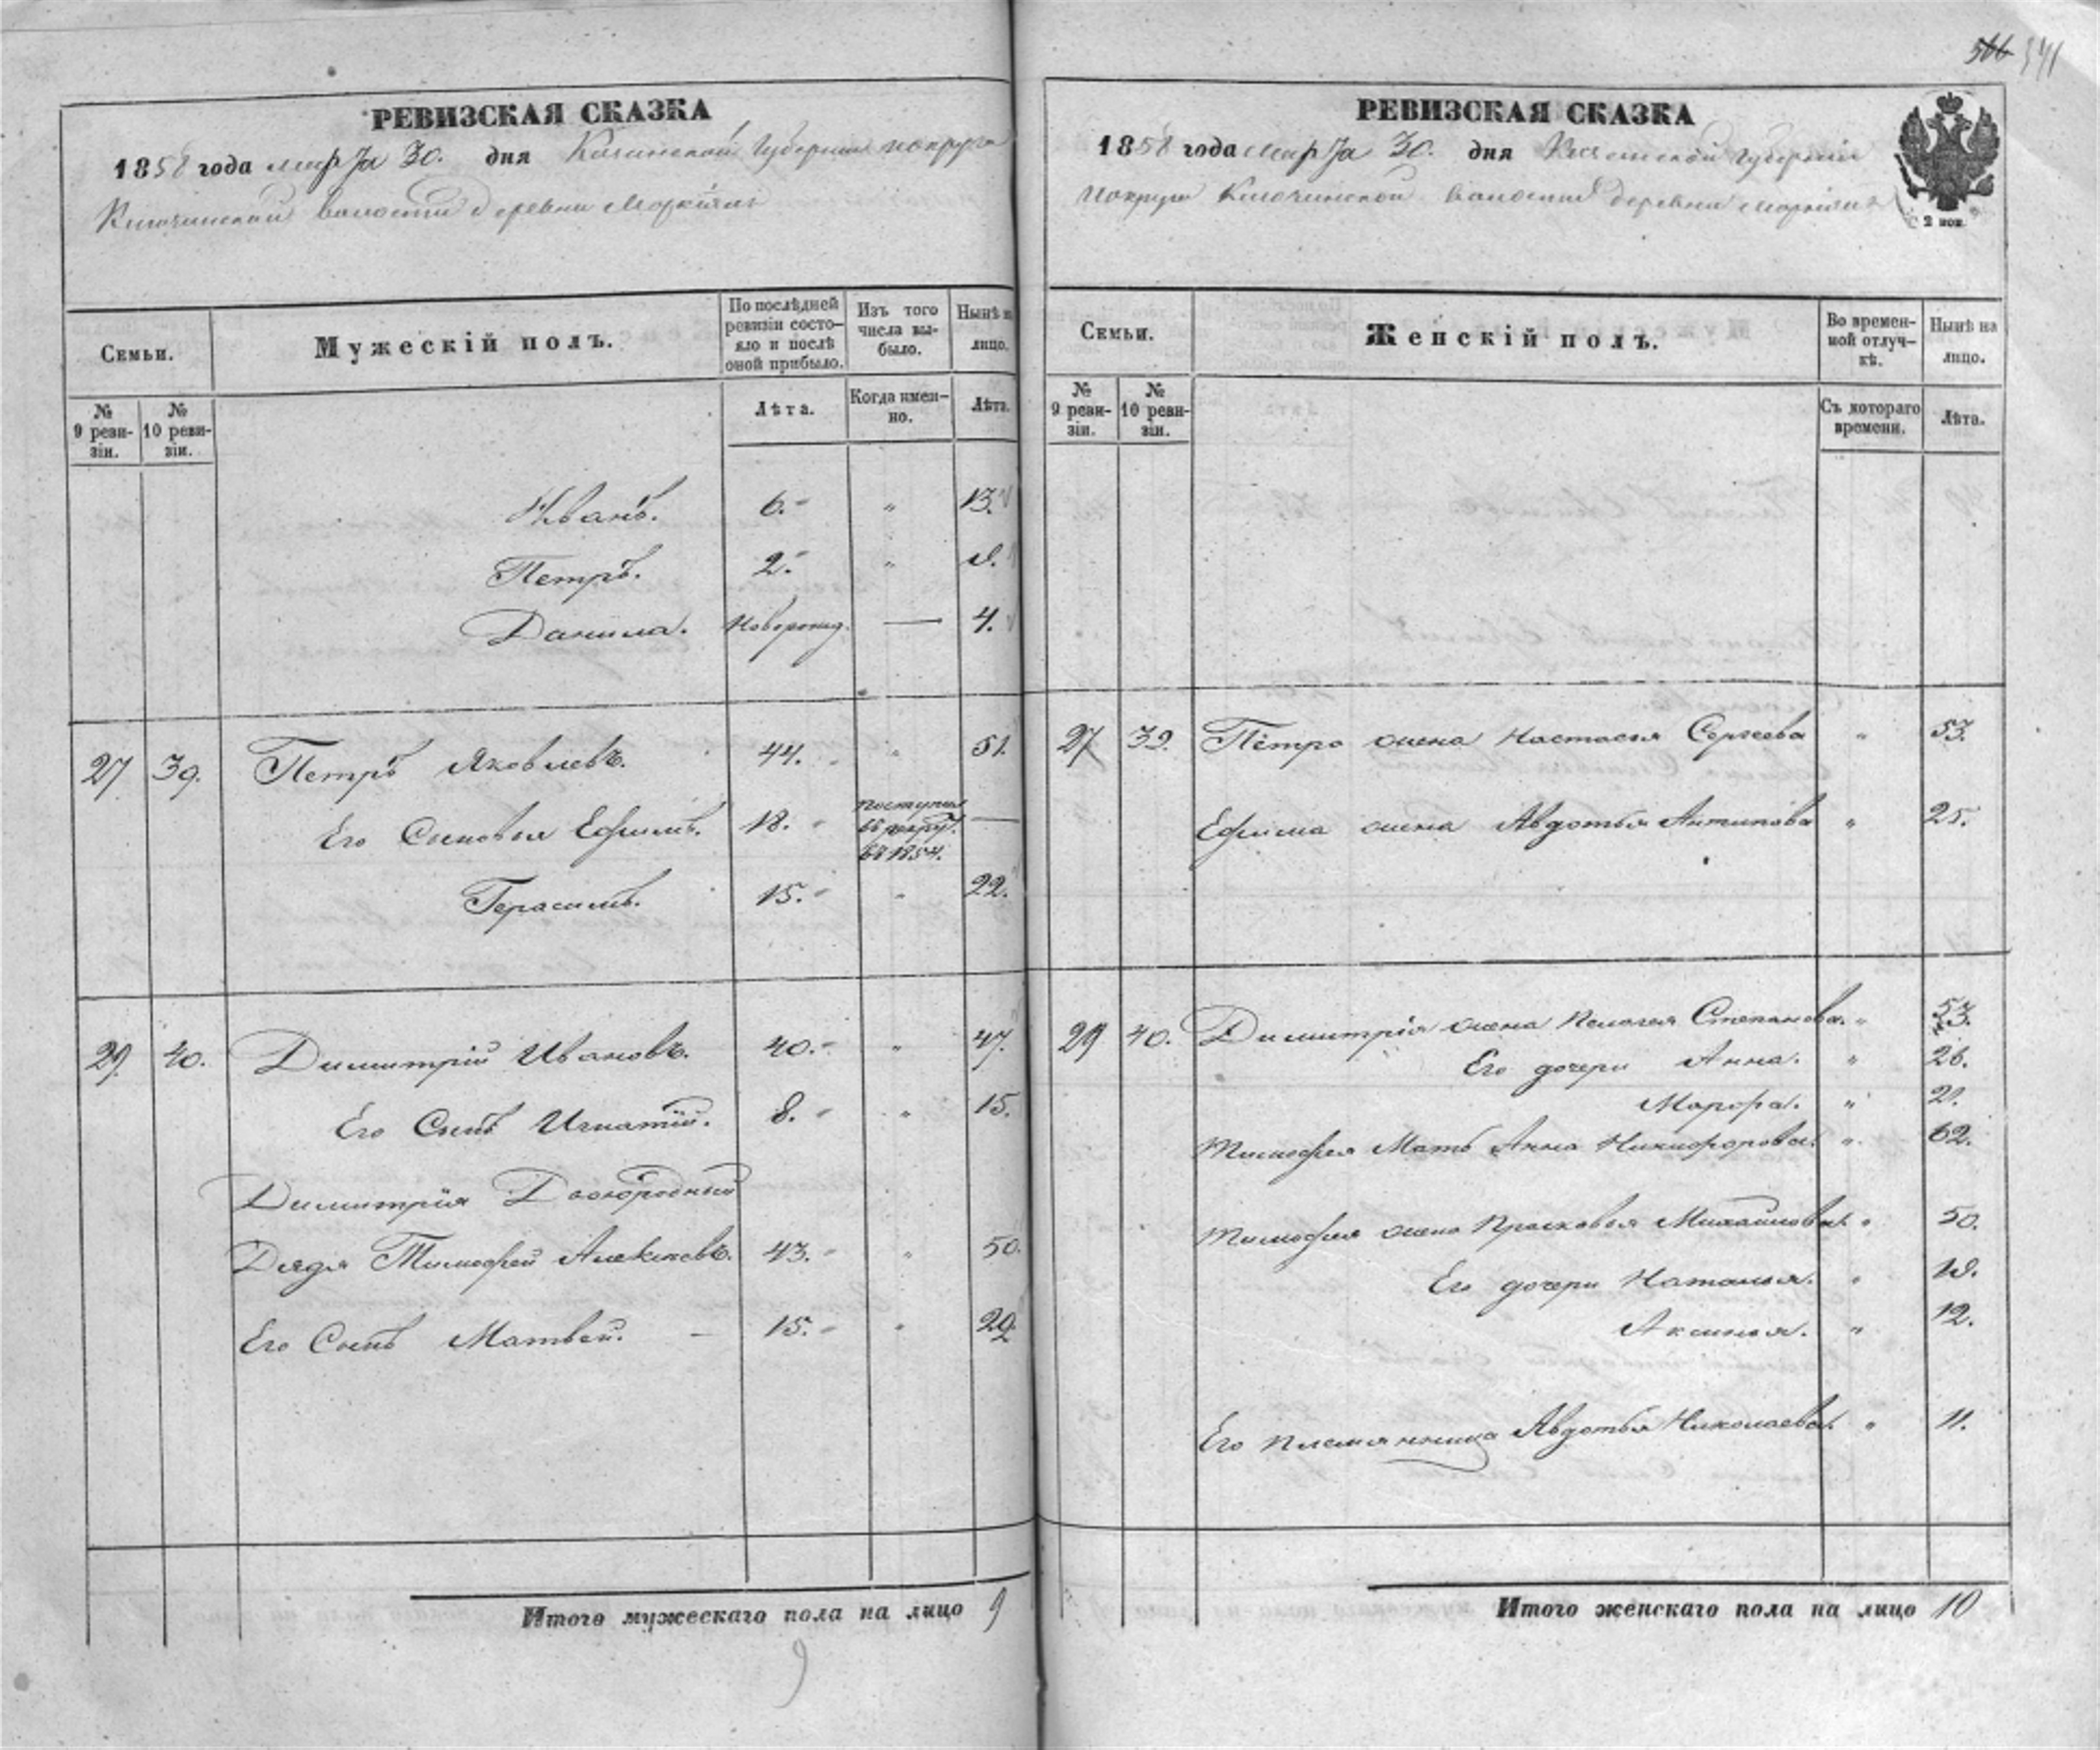 566 541
РЕВИЗСКАЯ СКАЗКА
1858 года марта 30. дня Казанской Губерніи и округа
Ключинской волости деревни
Семьи.
Мужескій полъ.
По послѣдней ревизіи состо-
яло и послѣ
оной прибыло.
Изъ того
числа вы-
было.
Нынѣ на
лицо.
№
9 реви-
зіи.
№
10 реви-
зіи.
Лѣта.
Когда имен-
но.
Лѣта.
Иванъ. 6. " 13.
Петръ. 2. " 9.
Данила. Новорожд. — 4.
27 39. Петръ Яковлевъ. 44. " 51.
Его Сыновья Ефимъ. 18. поступил
въ рекрут.
въ 1854. —
Герасимъ. 15. " 22.
29. 40. Димитрій Ивановъ. 40. " 47.
Его Сынъ Игнатій. 8. " 15.
Димитрія Двоюродный
Дядя Тимофей Алексѣевъ. 43. " 50.
Его Сынъ Матвей. — 15. " 22.
Итого мужескаго пола на лицо 9
9
РЕВИЗСКАЯ СКАЗКА
1858 года марта 30. дня Казанской Губерніи
и округи Ключинской волости деревни
2 коп.
Семьи.
Женскій полъ.
Во времен-
ной отлуч-
кѣ.
Нынѣ на
лицо.
№
9 реви-
зіи.
№
10 реви-
зіи.
Съ котораго
времени.
Лѣта.
27 39. Петра жена Настасья Сергеева " 53.
Ефима жена Авдотья Антипова " 25.
29 40. Димитрія жена Пелагея Степанова. " 53.
Его дочери Анна. " 26.
Марфа. " 21.
Тимофея Мать Анна Никифорова. " 62.
Тимофея жена Прасковья Михайлова. " 50.
Его дочери Наталья. " 19.
Аксинья. " 12.
Его племянница Авдотья Николаева. " 11.
Итого женскаго пола на лицо 10